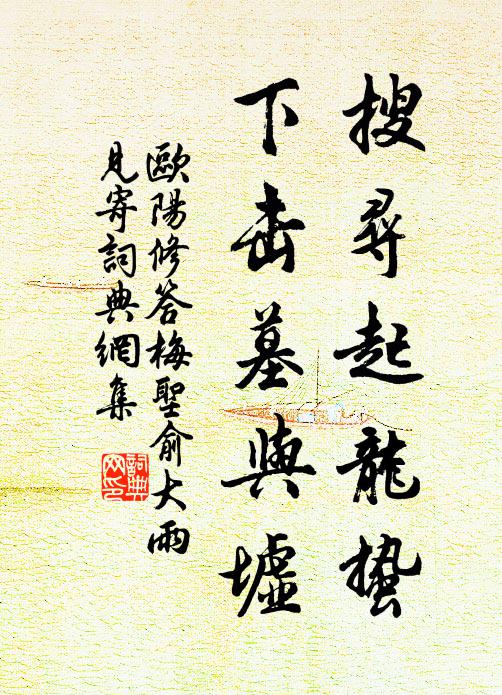 搜尋起龍蟄
下击墓與墟
歐陽修答梅聖俞大雨
見寄詞典網集
詞典
网印